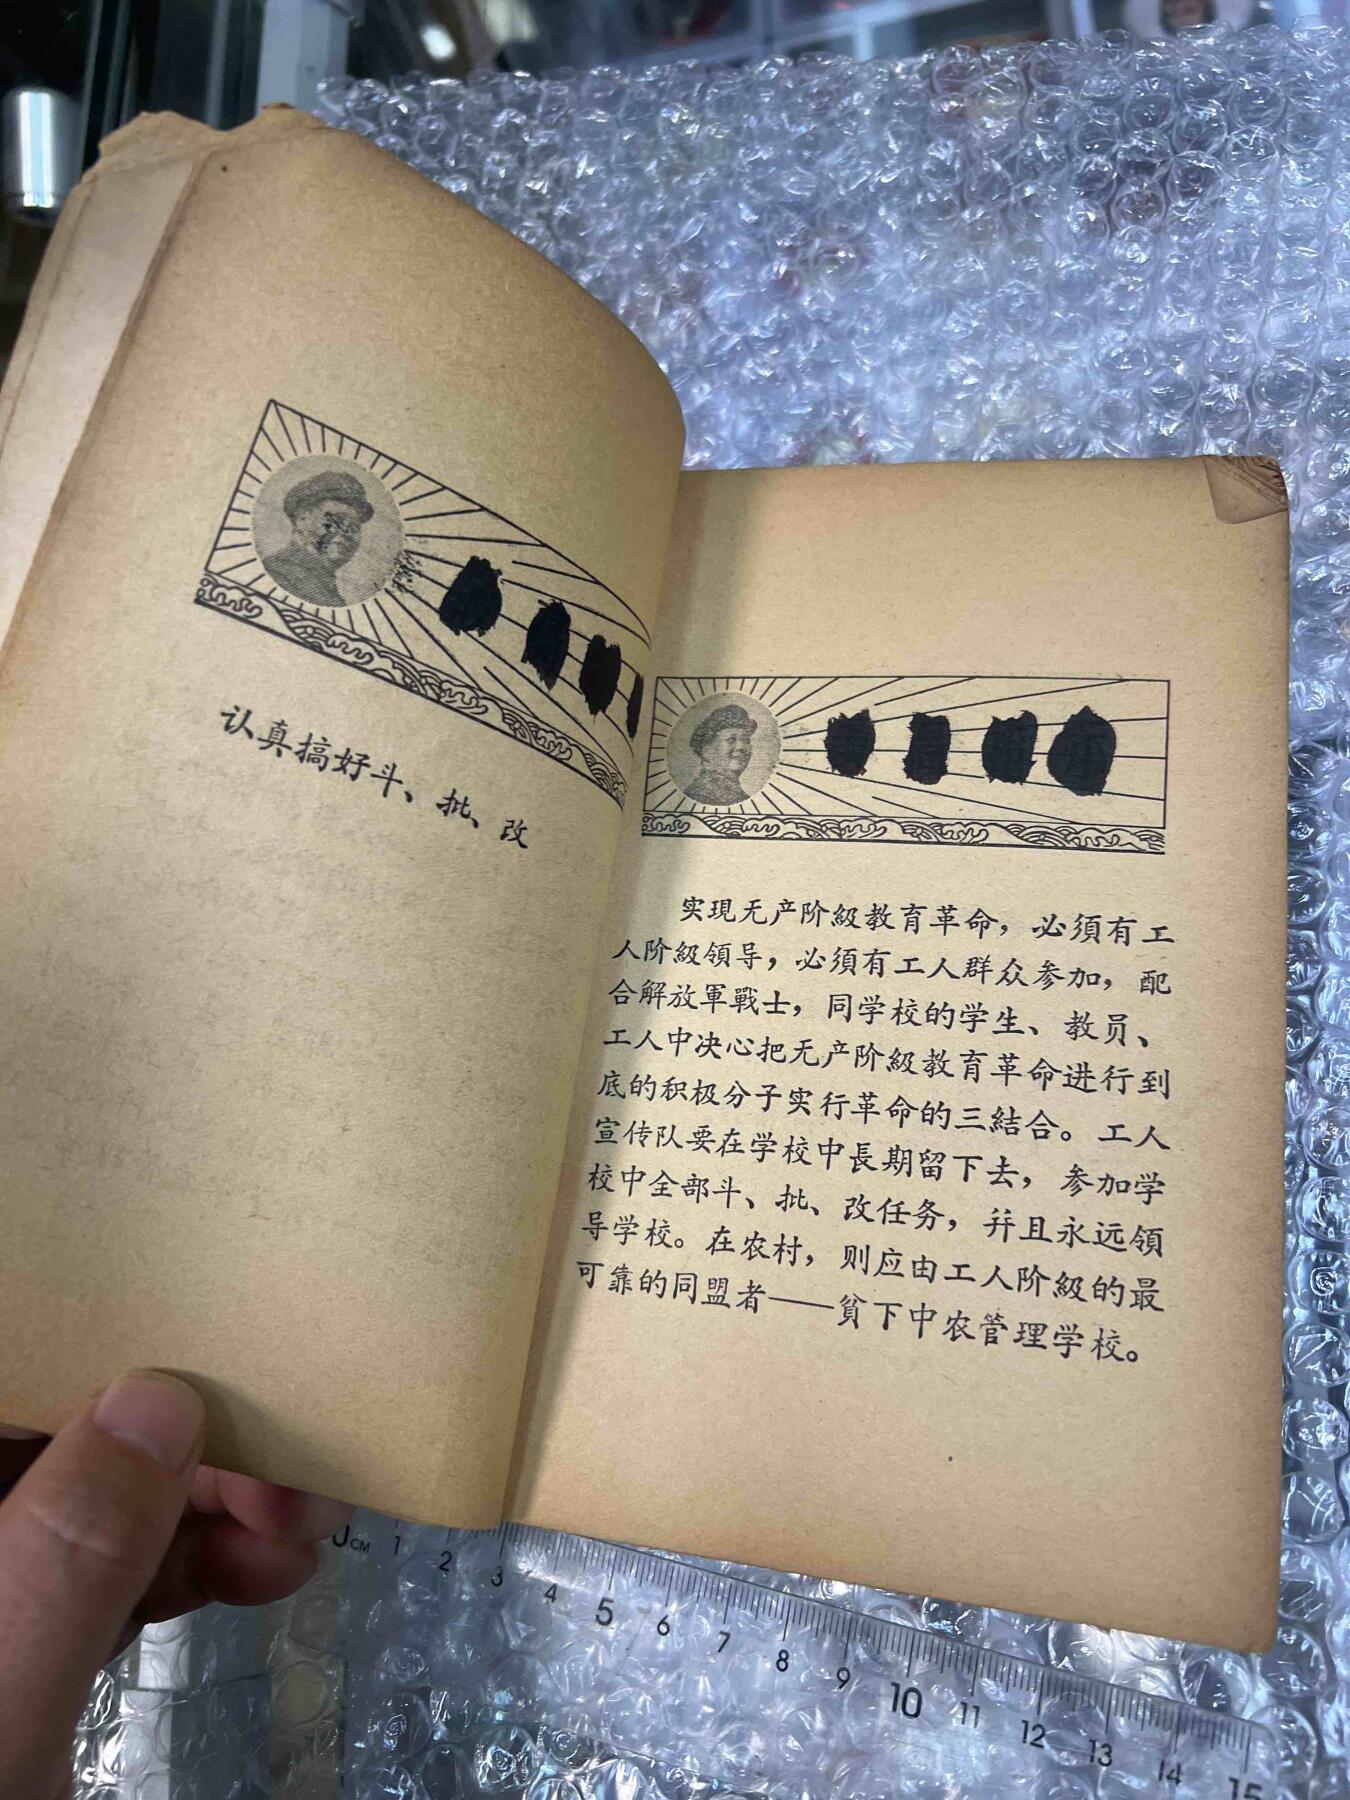 认真搞好斗、批、改
实現无产阶級教育革命，必須有工
人阶級領导，必須有工人群众参加，配
合解放軍戰士，同学校的学生、教员、
工人中决心把无产阶級教育革命进行到
底的积极分子实行革命的三結合。工人
宣传队要在学校中長期留下去，参加学
校中全部斗、批、改任务，并且永远領
导学校。在农村，则应由工人阶級的最
可靠的同盟者——貧下中农管理学校。
0CM 1 2 3 4 5 6 7 8 9 10 11 12 13 14 15